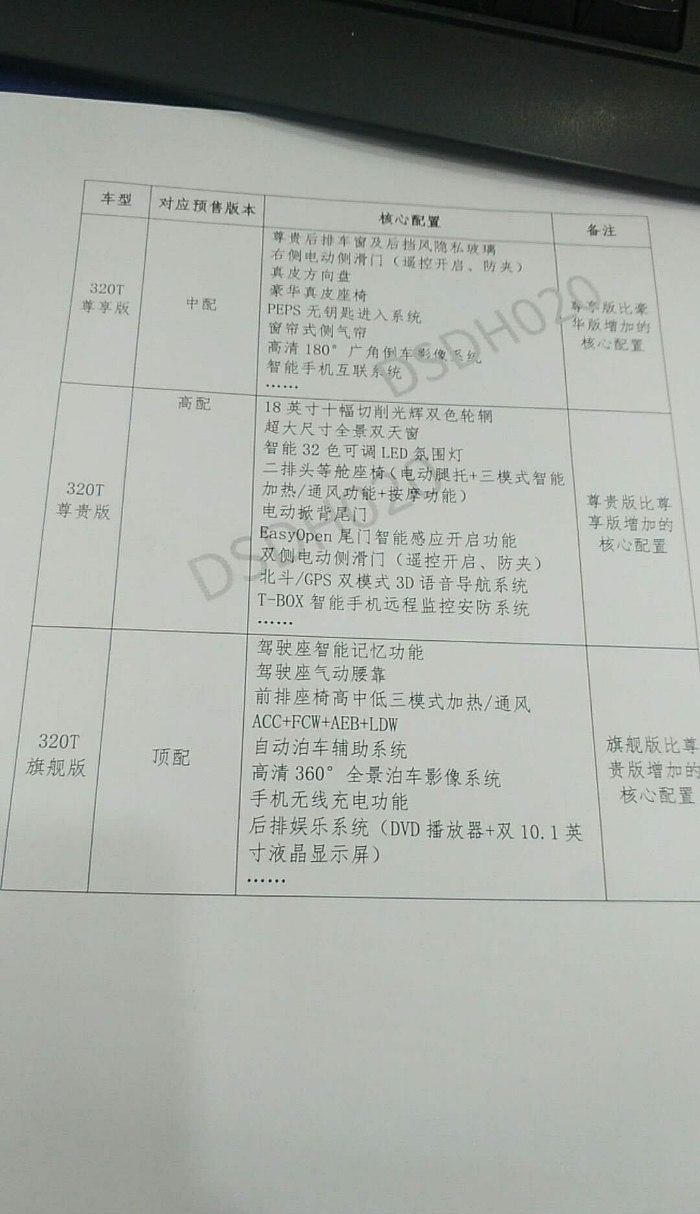 车型 对应预售版本 核心配置 备注
320T
尊享版
中配
尊贵后排车窗及后挡风隐私玻璃
右侧电动侧滑门（遥控开启、防夹）
真皮方向盘
豪华真皮座椅
PEPS 无钥匙进入系统
窗帘式侧气帘
高清 180° 广角倒车影像系统
智能手机互联系统
……
尊享版比豪
华版增加的
核心配置
320T
尊贵版
高配
18 英寸十幅切削光辉双色轮辋
超大尺寸全景双天窗
智能 32 色可调 LED 氛围灯
二排头等舱座椅（电动腿托+三模式智能
加热/通风功能+按摩功能）
电动掀背尾门
EasyOpen 尾门智能感应开启功能
双侧电动侧滑门（遥控开启、防夹）
北斗/GPS 双模式 3D 语音导航系统
T-BOX 智能手机远程监控安防系统
……
尊贵版比尊
享版增加的
核心配置
320T
旗舰版
顶配
驾驶座智能记忆功能
驾驶座气动腰靠
前排座椅高中低三模式加热/通风
ACC+FCW+AEB+LDW
自动泊车辅助系统
高清 360° 全景泊车影像系统
手机无线充电功能
后排娱乐系统（DVD 播放器+双 10.1 英
寸液晶显示屏）
……
旗舰版比尊
贵版增加的
核心配置
DSDH020
DSDH020